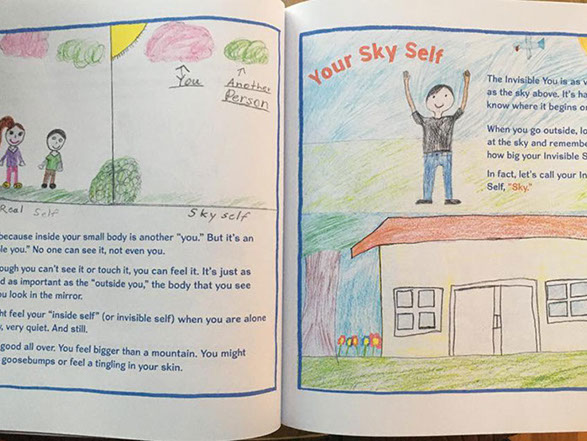 You
Another
Person
Real Self
Sky self
because inside your small body is another "you." But it's an
you." No one can see it, not even you.
you can't see it or touch it, you can feel it. It's just as
as important as the "outside you," the body that you see
you look in the mirror.
feel your "inside self" (or invisible self) when you are alone
very quiet. And still.
good all over. You feel bigger than a mountain. You might
goosebumps or feel a tingling in your skin.
Your Sky Self
The Invisible You is as
as the sky above. It's
know where it begins
When you go outside,
at the sky and
how big your Invisible
In fact, let's call your
Self, "Sky."